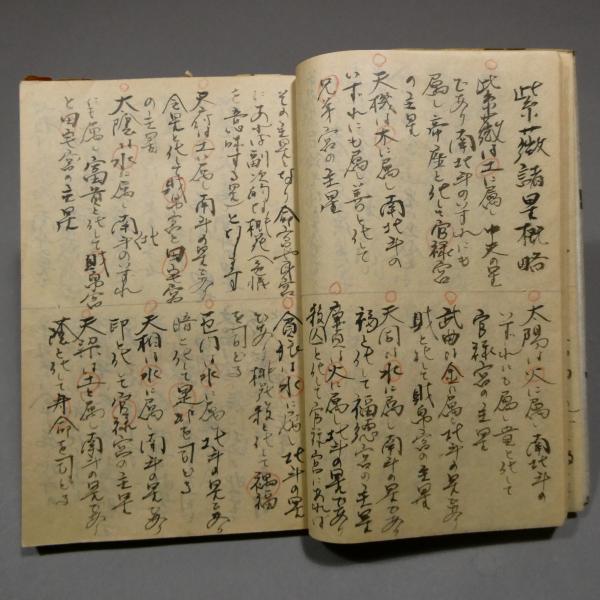 紫薇諸星概略
紫薇は土に属し中央の星
であり南北斗のいずれにも
属し帝座と化して官禄宮
の主星
天機は木に属し南北斗の
いずれにも属し善と化して
兄弟宮の主星
太陽は火に属し南北斗の
いずれにも属し貴と化して
官禄宮の主星
武曲は金に属し北斗の星であり
財と化して財帛宮の主星
天同は水に属し南斗の星であり
福と化して福徳宮の主星
廉貞は火に属し北斗の星であり
殺囚と化して官禄宮にあれば
その主星となり命宮や身宮
にあれば副次的な桃花
を意味する星となります
天府は土に属し南斗の星であり
令星と化して財帛宮と田宅宮
の主星
太陰は水に属し南北斗のいずれ
にも属し富と化して財帛宮
と田宅宮の主星
貪狼は水に属し北斗の星
であり桃花殺と化して禍福
を司どる
巨門は水に属し北斗の星であり
暗と化して是非を司どる
天相は水に属し南斗の星であり
印と化して官禄宮の主星
天梁は土に属し南斗の星であり
蔭と化して寿命を司どる